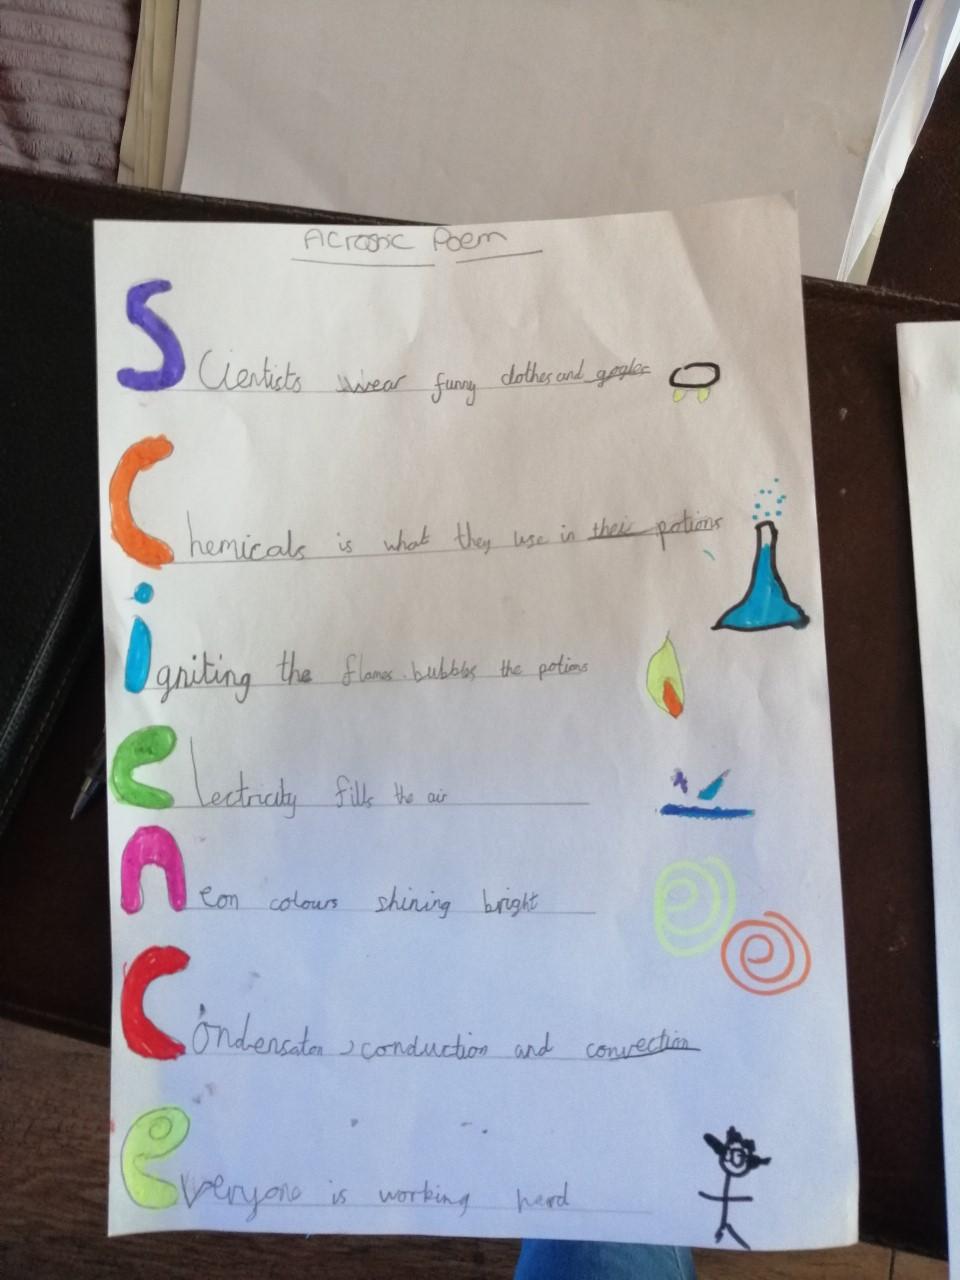 Acrostic Poem
Scientists wear funny clothes and gogles
Chemicals is what they use in their potions
igniting the flames bubbles the potions
electricity fills the air
neon colours shining bright
Condensaton, conduction and convection
everyone is working hard